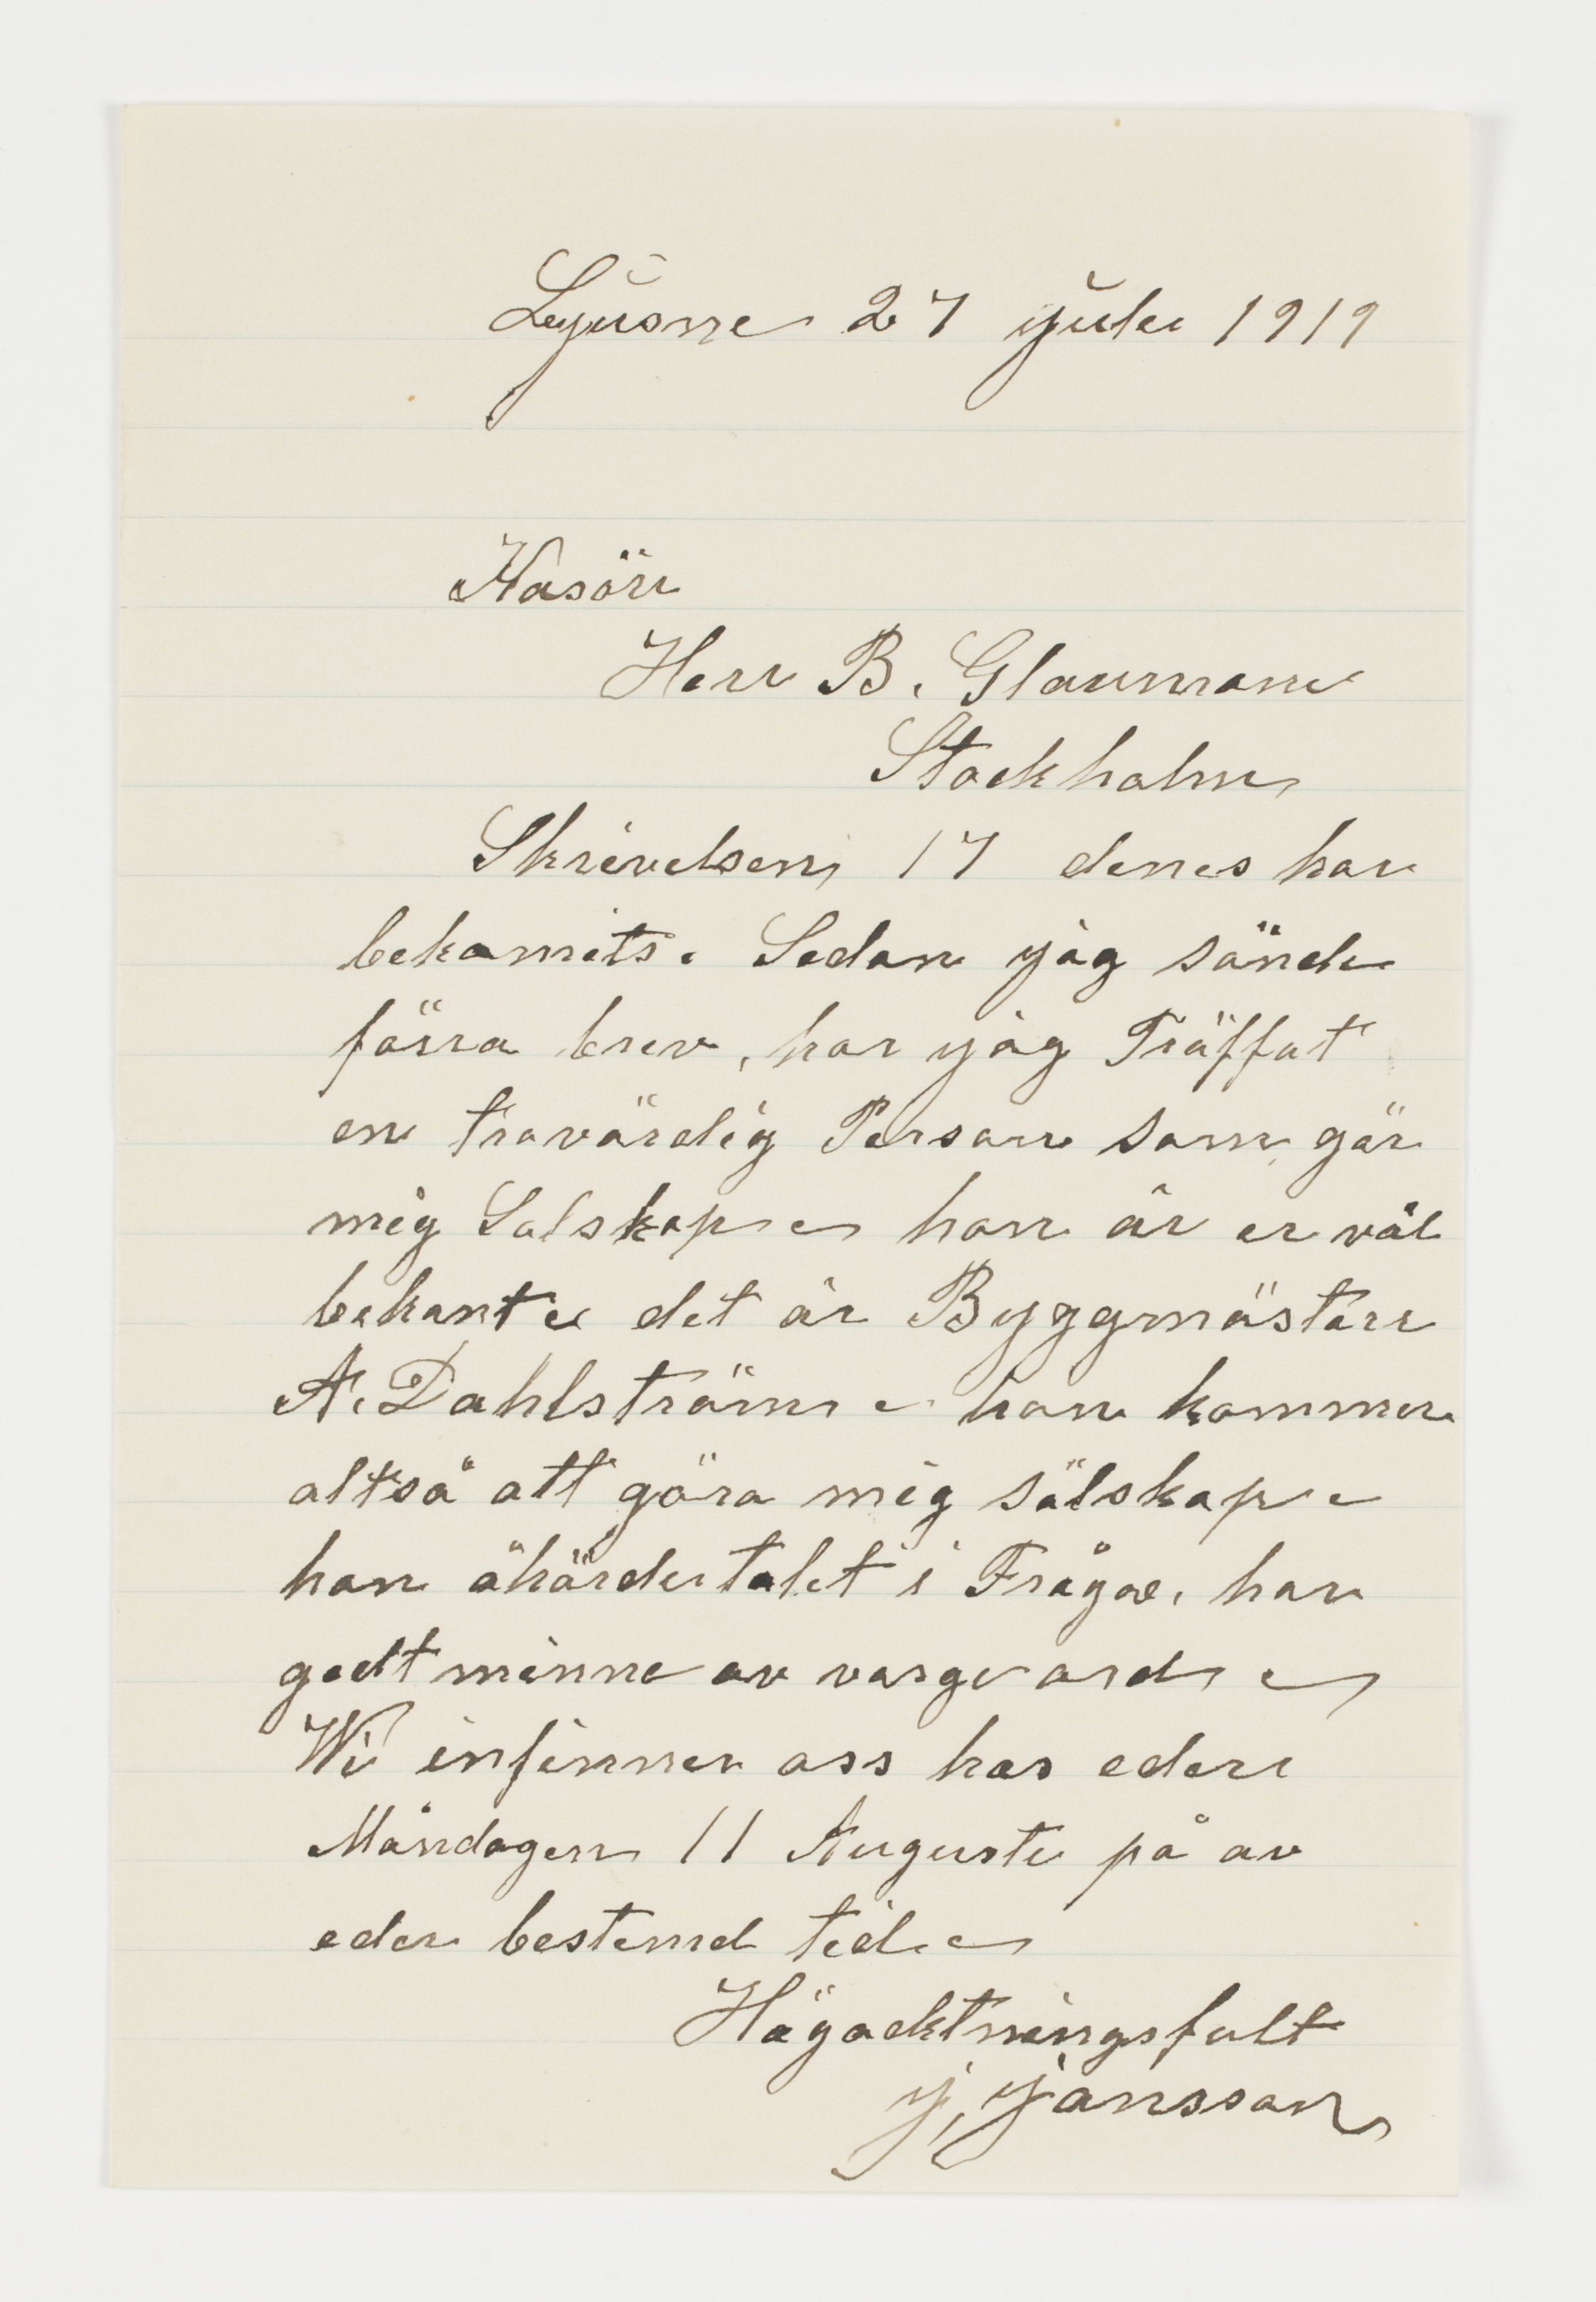 Ljusne 27 juli 1919
Kasör
Herr B. Glaumann
Stockholm
Skrivelsen 17 denes har
bekomits. Sedan jag sände
förra brev, har jag Träffat
en trovärdig Person som gör
mig Salskap. han är er väl
bekant. det är Byggmästare
A. Dahlström. han kommer
altså att göra mig sälskap.
han åhörde talet i Fråga, har
godt minne av varge ord.
Wi infinner oss hos eder
Måndagen 11 Augusti på av
eder bestemd tid.
Högacktningsfult
J, Jansson